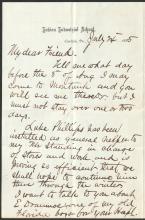 Indian Industrial School,
July 24
My dear Friend.
Tell me what day
before the 8" of Aug I may
come to Montauk and you
will see me there but I
must not stay over one or two
days.
Luke Phillips has been
installed as general helper to
Mr Standing in charge
of stores and work and is
proving so efficient that we
shall hope to continue him
there through the winter
I want to talk to you about
one of my old
Florida boys for you